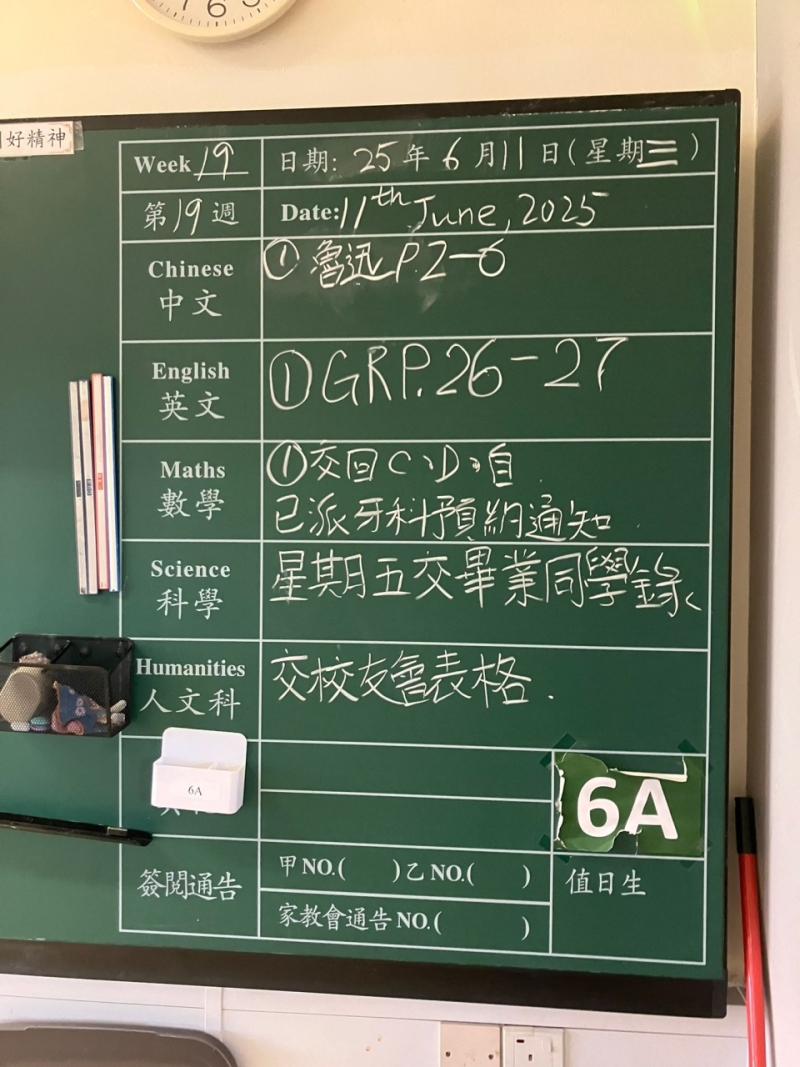 好精神
Week 19 日期: 25年6月11日(星期三)
第19週 Date: 11th June, 2025
Chinese
中文
① 魯迅 P.2-6
English
英文
① GRP.26-27
Maths
數學
① 交回 C、D、自
已派牙科預約通知
Science
科學
星期五交畢業同學錄
Humanities
人文科
交校友會表格.
6A
6A
簽閱通告
甲 NO.( ) 乙 NO.( )
家教會通告 NO.( )
值日生